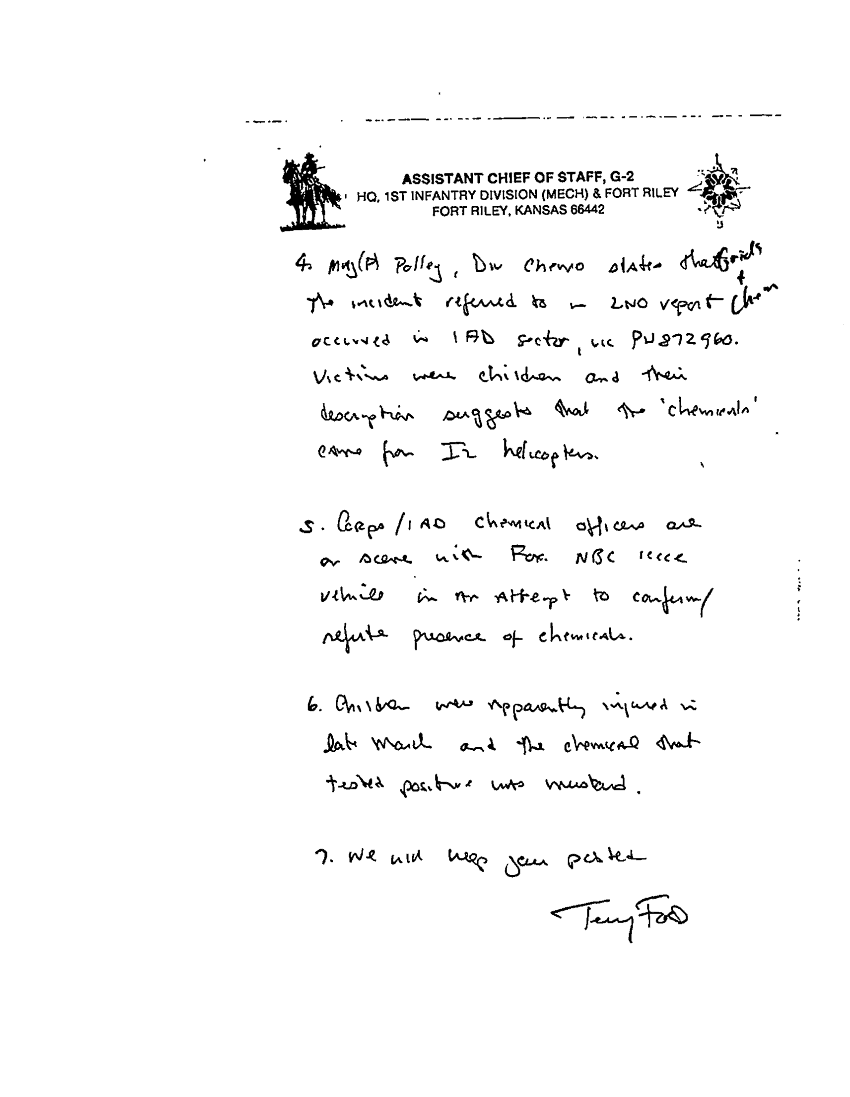 ASSISTANT CHIEF OF STAFF, G-2
HQ, 1ST INFANTRY DIVISION (MECH) & FORT RILEY
FORT RILEY, KANSAS 66442
4. Maj(P) Polley, Div Chemo states that
the incident referred to in LNO report Chem
occurred in 1AD sector, vic PU872960.
Victims were children and their
description suggests that the 'chemicals'
came from IZ helicopters.
5. Corps/1AD chemical officers are
on scene with Fox NBC
vehicle in an attempt to confirm/
refute presence of chemicals.
6. Children were apparently injured in
late March and the chemical that
tested positive was mustard.
7. We will keep you posted
Terry Ford